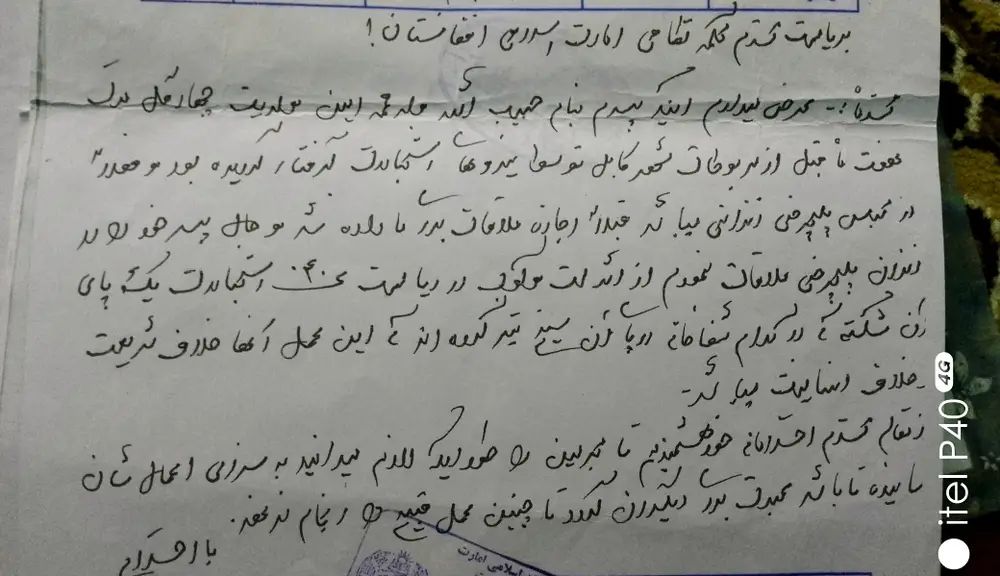 بریاست محترم محکمه نظامی امارت اسلامی افغانستان!
محترما:- عرض میدارم اینکه پسرم بنام حبیب الله ولد محمد امین بولدیت چهارقلی مدت
هفت ماه قبل از مربوطات شهر کابل توسط نیروها استخبارات گرفتار گردیده بود و فعلاً
در محبس پلچرخی زندانی میباشد قبلاً اجازه ملاقات برا ما داده نشد و حال پسر خود را در
زندان پلچرخی ملاقات نمودم از اثر لت وکوب در ریاست ۰۴۰ استخبارات یک پای
آن شکسته که در کدام شفاخانه دوپا آن سیخ تیر کرده اند که این عمل آنها خلاف شریعت
خلاف انسانیت میباشد
ازمقام محترم احترامانه خواهشمندیم تا مجرمین را طوریکه لازم میدانید به سزای اعمال شان
رسانیده تا باشد عبرت برا دیگران گردد تا چنین عمل قبیح را انجام ندهند.
با احترام
اسلامی امارت
itel P40 4G